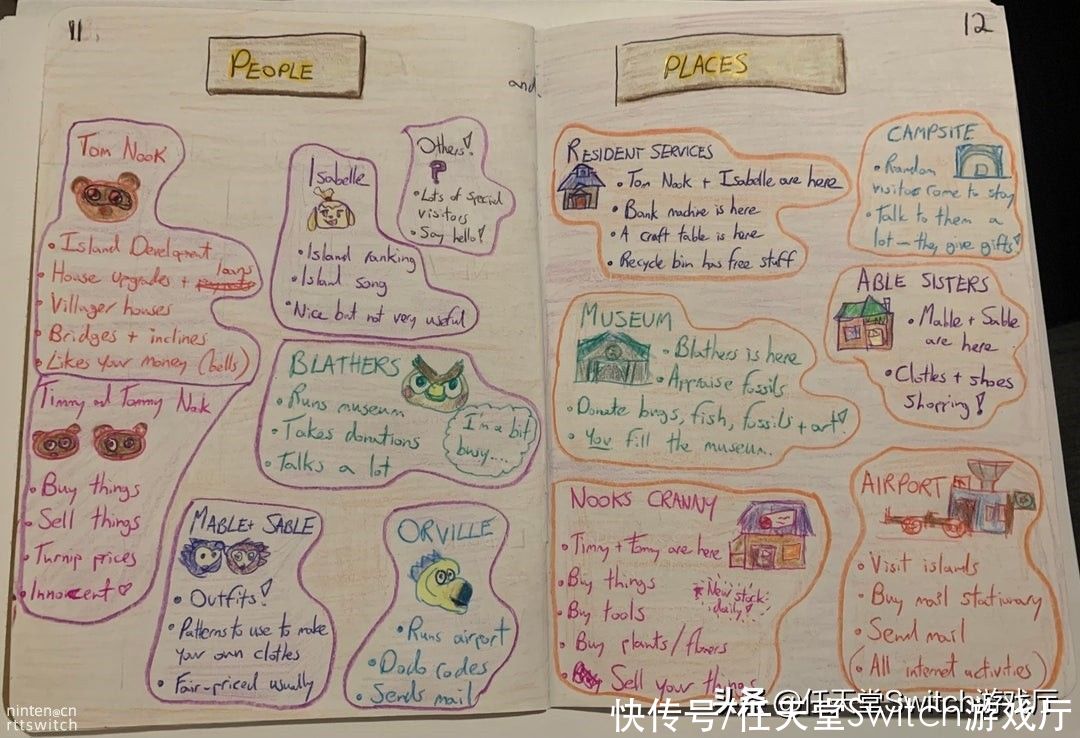 11.
PEOPLE
and.
Tom Nook
• Island Development
• House upgrades + loans
• Villager houses
• Bridges + inclines
• Likes your money (bells)
Timmy and Tommy Nook
• Buy things
• Sell things
• Turnip prices
• Innocent ♡
Isabelle
• Island ranking
• Island song
• Nice but not very useful
Others!
?
• Lots of special
visitors
• Say hello!
BLATHERS
• Runs museum
• Takes donations
• Talks a lot
I'm a bit
busy....
MABLE + SABLE
• Outfits!
• Patterns to use to make
your own clothes
• Fair-priced usually
ORVILLE
• Runs airport
• Dodo codes
• Sends mail
12
PLACES
RESIDENT SERVICES
• Tom Nook + Isabelle are here
• Bank machine is here
• A craft table is here
• Recycle bin has free stuff
CAMPSITE
• Random
visitors come to stay
• Talk to them a
lot – they give gifts!
MUSEUM
• Blathers is here
• Appraise fossils
• Donate bugs, fish, fossils + art!
• You fill the museum.
ABLE SISTERS
• Mable + Sable
are here
• Clothes + shoes
shopping!
NOOKS CRANNY
• Timmy + Tommy are here
• Buy things
• Buy tools
• Buy plants/flowers
• Sell your things
* New stock
daily!
AIRPORT
• Visit islands
• Buy mail stationary
• Send mail
(• All internet activities)
ninten@cn
rttswitch
头条 @任天堂Switch游戏厅
快传号/任天堂Switch游戏厅